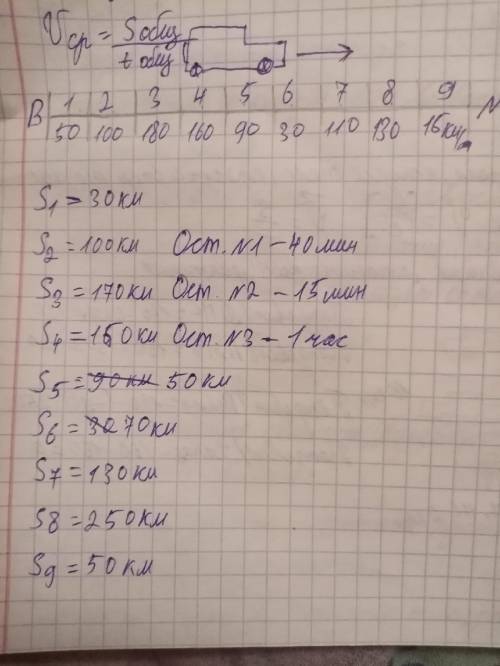 Vср = Sобщ / tобщ
В | 1 | 2 | 3 | 4 | 5 | 6 | 7 | 8 | 9
50 | 100 | 180 | 160 | 90 | 30 | 110 | 130
S1 = 30 км
S2 = 100 км Ост. №1 - 40 мин
S3 = 170 км Ост. №2 - 15 мин
S4 = 150 км Ост. №3 - 1 час
S5 = 90 км 50 км
S6 = 30 70 км
S7 = 130 км
S8 = 250 км
S9 = 50 км